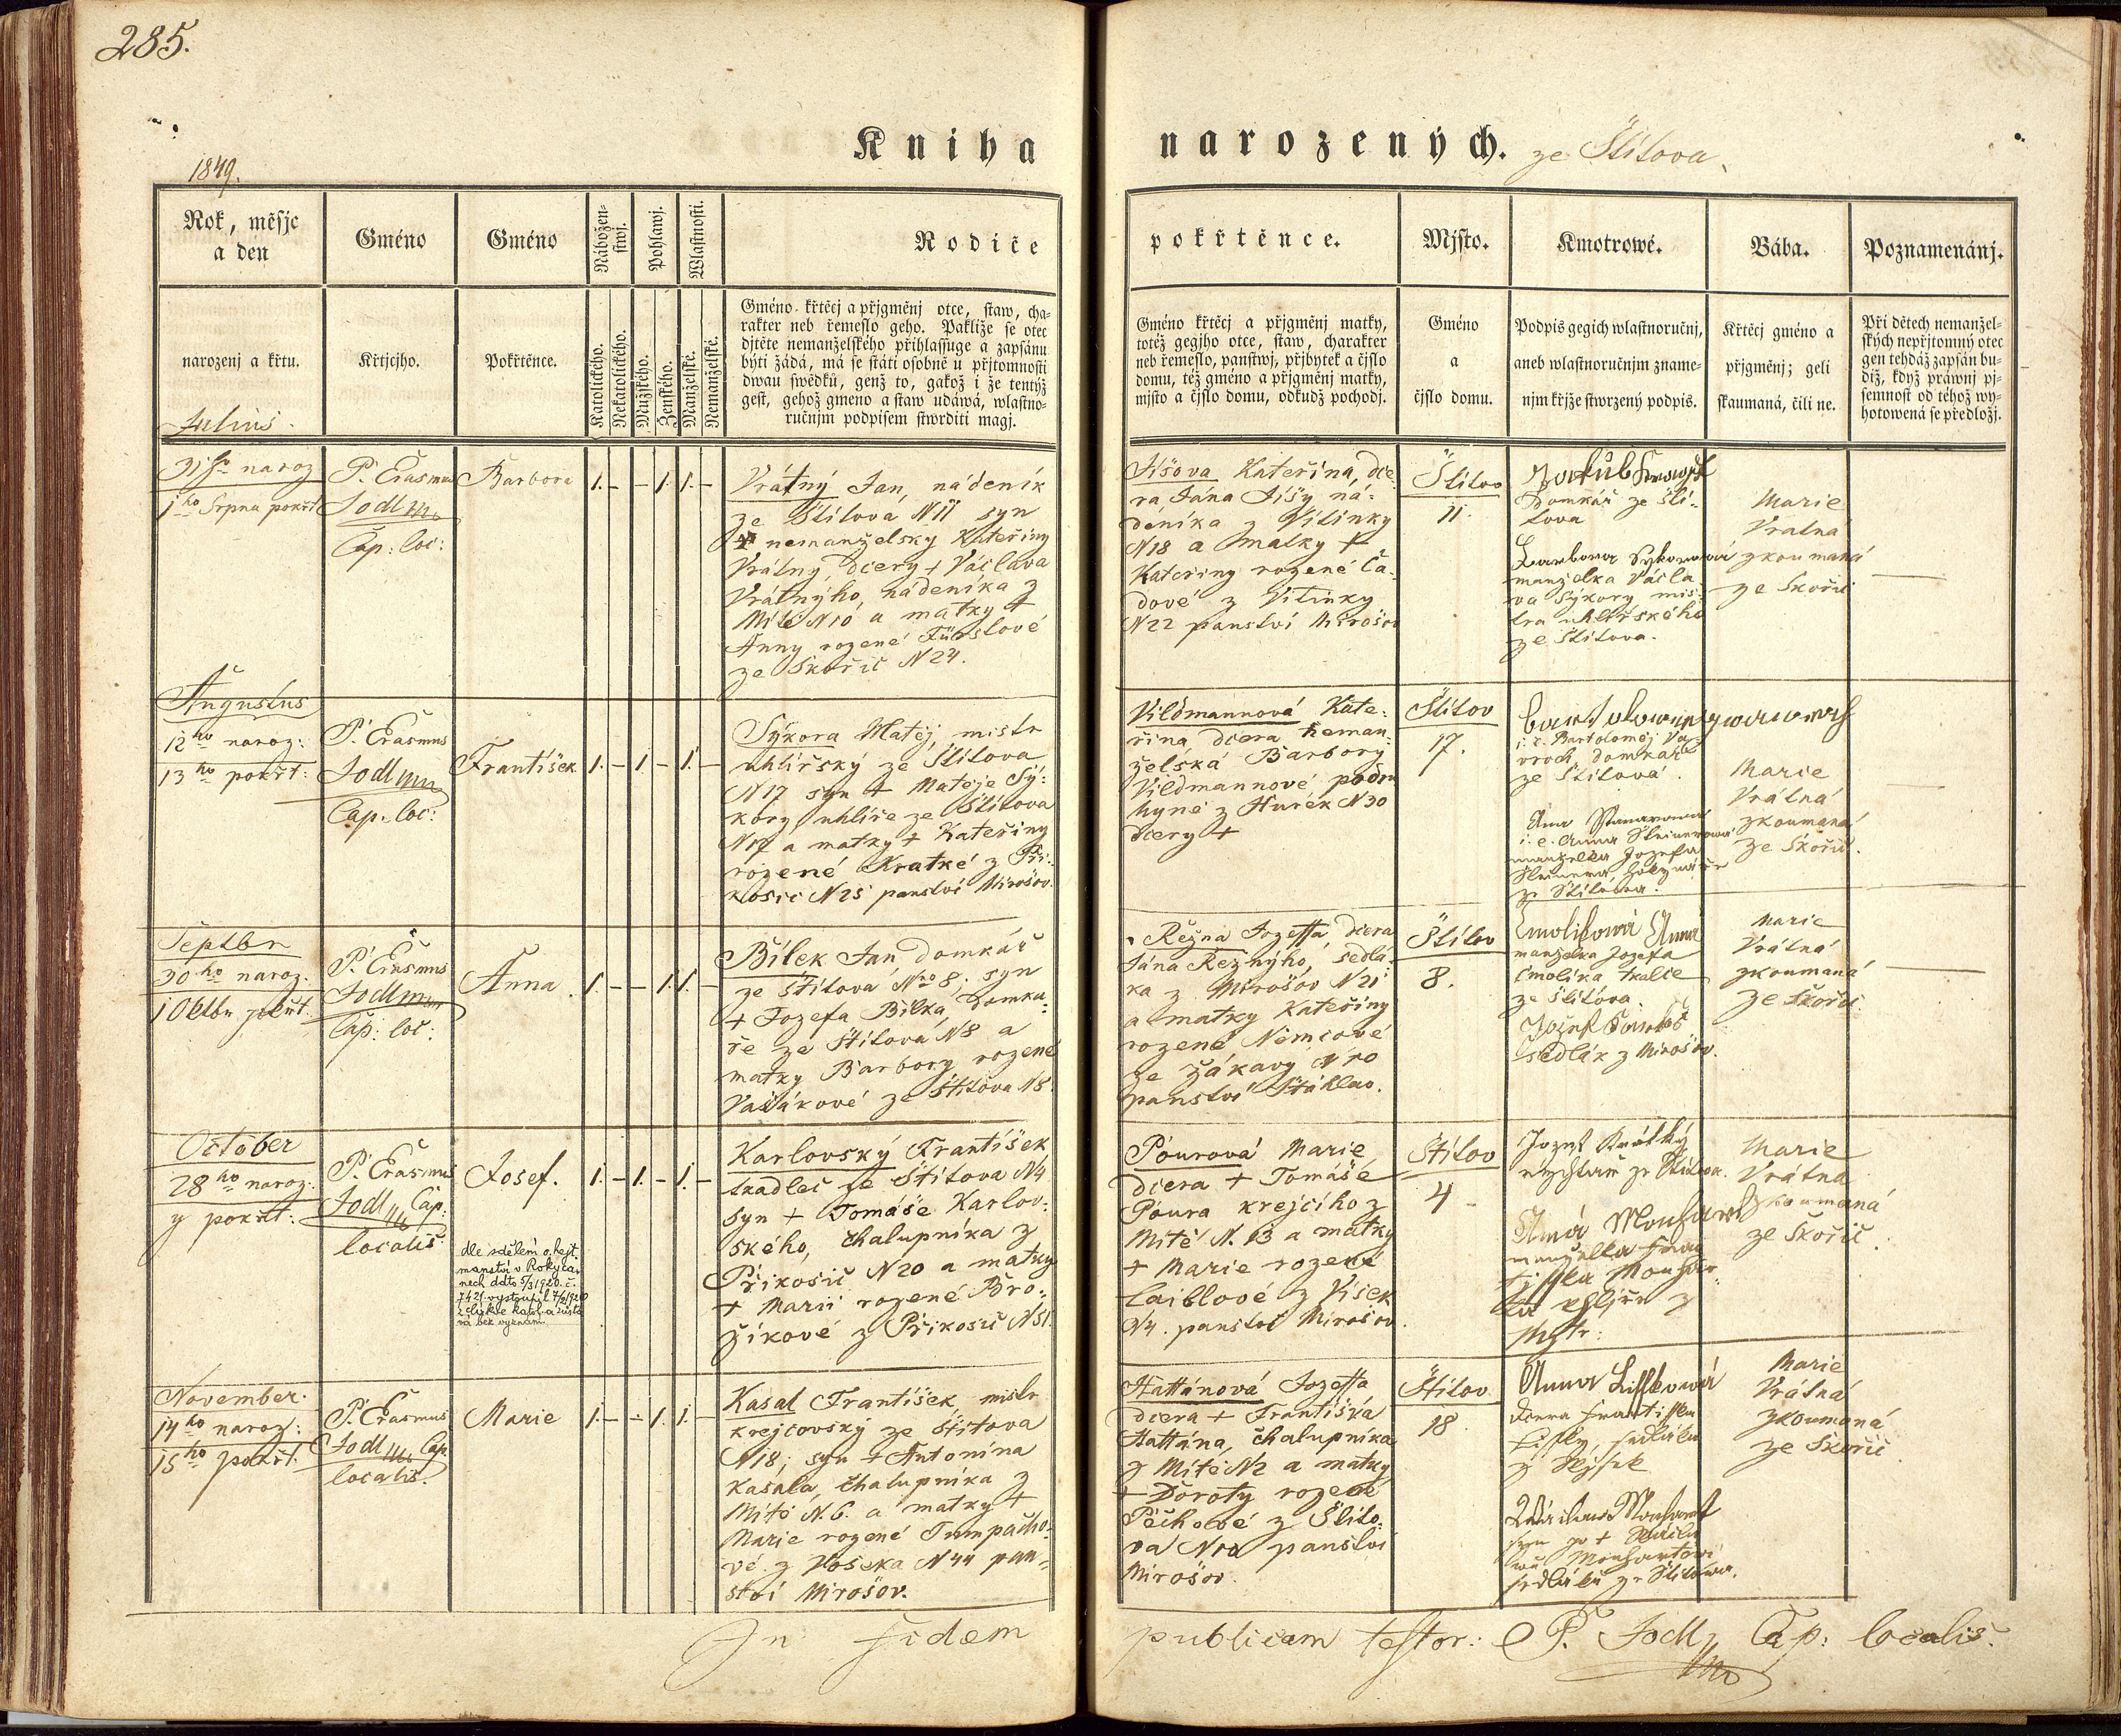 285.
Kniha narozených. ze Štítova
1849.
Rok, měsjc
a den
narozenj a křtu.
Gméno
Křtjcjho.
Gméno
Pokřtěnce.
Nábožen-
stwj.
Pohlawj.
Wlastnosti.
Katolického.
Nekatolického.
Mužského.
Ženského.
Manželské.
Nemanželské.
Rodiče
Gméno křtěcj a přjgměnj otce, staw, cha-
rakter neb řemeslo geho. Pakliže se otec
djtěte nemanželského přihlassuge a zapsánu
býti žádá, má se státi osobně u přjtomnosti
dwau swědků, genž to, gakož i že tentýž
gest, gehož gmeno a staw udáwá, wlastno-
ručnjm podpisem stwrditi magj.
pokřtěnce.
Gméno křtěcj a přjgměnj matky,
totéž gegjho otce, staw, charakter
neb řemeslo, panstwj, přjbytek a čjslo
domu, též gméno a přjgměnj matky,
mjsto a čjslo domu, odkudž pochodj.
Mjsto.
Gméno
a
čjslo domu.
Kmotrowé.
Podpis gegich wlastnoručnj,
aneb wlastnoručnjm zname-
njm křjže stwrzený podpis.
Bába.
Křtěcj gméno a
přjgměnj; geli
skaumaná, čili ne.
Poznamenánj.
Při dětech nemanžel-
ských nepřjtomný otec
gen tehdáž zapsán bu-
diž, když práwnj pj-
semnost od téhož wy-
hotowená se předložj.
Julius.
31ho naroz
1ho Srpna pokřt
P. Erasmus
Jodl
Cap: loc:
Barbora
1. – – 1. 1. –
Vrátný Jan, nádeník
ze Štítova N 11 syn
nemanželsky Kateřiny
Vrátny, dcery + Václava
Vrátnýho, nádeníka z
Mítě N10 a matky +
Anny rozené
ze Skořic N 24.
Jíšova Kateřina, dce
ra Jána Jíšy ná-
deníka z Vitinky
N18 a matky +
Kateriny rozené Ča-
dové z Vitinky
N22 panství Mirošov
Štítov
11.
Jakub
Domkář ze Ští-
tova
Barbora Sykorová
manželka Václa-
va Sýkory mis-
tra uhlířského
ze Štítova.
Marie
Vratná
zkoumaná
ze Skořic
Augustus
12ho naroz:
13ho pokřt:
P. Erasmus
Jodl
Cap. loc:
František
1. – 1. – 1. –
Sýkora Matěj, mistr
uhlířský ze Štítova
N17 syn + Matěje Sý-
kory, uhlíře ze Štítova
N17 a matky + Kateřiny
rozené Kratké z Při-
kosic N25 panství Mirošov.
Vildmannová Kate-
řina dcera neman-
želská Barbory
Vildmannové, podru
hyně z Hurek N30
dcery +
Štítov
17.
i. e. Bartoloměj Va-
vroch, domkář
ze Štítova.
i. e. Anna Steinerová
manželka Jozefa
Steinera,
ze Štítova.
Marie
Vrátná
zkoumaná
ze Skořic.
Septbr
30ho naroz.
1 Oktbr pokřt.
P. Erasmus
Jodl
Cap: loc:
Anna
1. – – 1. 1. –
Bílek Jan, domkář
ze Štítova Nro 8, syn
+ Jozefa Bílka, domka-
ře ze Štítova N8 a
matky Barbory rozené
ze Štítova N8.
Režna Jozeffa dcera
Jána Režnýho, sedlá-
ka z Mirošov N21
a matky Kateřiny
rozené Němcové
ze Žákavy
panství Štáhlav.
Štítov
8.
Cmolikowá Anna
manželka Jozefa
Cmolíka tkalce
ze Štítova.
Jozef
sedlák z Mirošov.
Marie
Vrátná
zkoumaná
ze Skořic
October
28ho naroz.
y pokřt:
P. Erasmus
Jodl Cap:
localis
Josef.
dle sdělení o. hejt.
manství v Rokyca-
nech ddto 5/3 1920. č.
7421 vystoupil
z církve katol. a zůstá
vá bez vyznání.
1. – 1. – 1. –
Karlovský František
tkadlec ze Štítova N4
syn + Tomáše Karlov-
ského, chalupníka z
Přikosic N20 a matky
+ Marii rozené Bro-
žíkové z Přikosic N51.
Pourová Marie
dcera + Tomáše
Poura krejcího z
Mítě N. 13 a matky
+ Marie rozené
Laiblové z Vísek
N4. panství Mirošov.
Štítov
4
Jozef Krátký
rychtář ze Štítova.
manželka Fran-
tiška
uhlíře z
Mýtě.
Marie
Vrátná
zkoumaná
ze Skořic.
November.
14ho naroz:
15ho pokřt.
P. Erasmus
Jodl Cap
localis.
Marie
1. – – 1. 1. –
Kasal František, mistr
krejcovský ze Štítova
N18, syn + Antonína
Kasala, chalupníka z
Mítě N. 6. a matky +
Marie rozené Trumpacho-
vé z Voseka N44 pan-
ství Mirošov.
Hattánová Jozeffa
dcera + Františka
Hattána, chalupníka
z Mítě N2 a matky
+ Doroty rozené
Pechové z Štíto-
va N10 panství
Mirošov.
Štítov
18
Anna Liffkowá
dcera Františka
Lifky, sedláka
z Wjsek
sedláka ze Štítowa.
Marie
Vrátná
zkoumaná
ze Skořic
In fidem publicam testor: P. Jodl, Cap: localis.